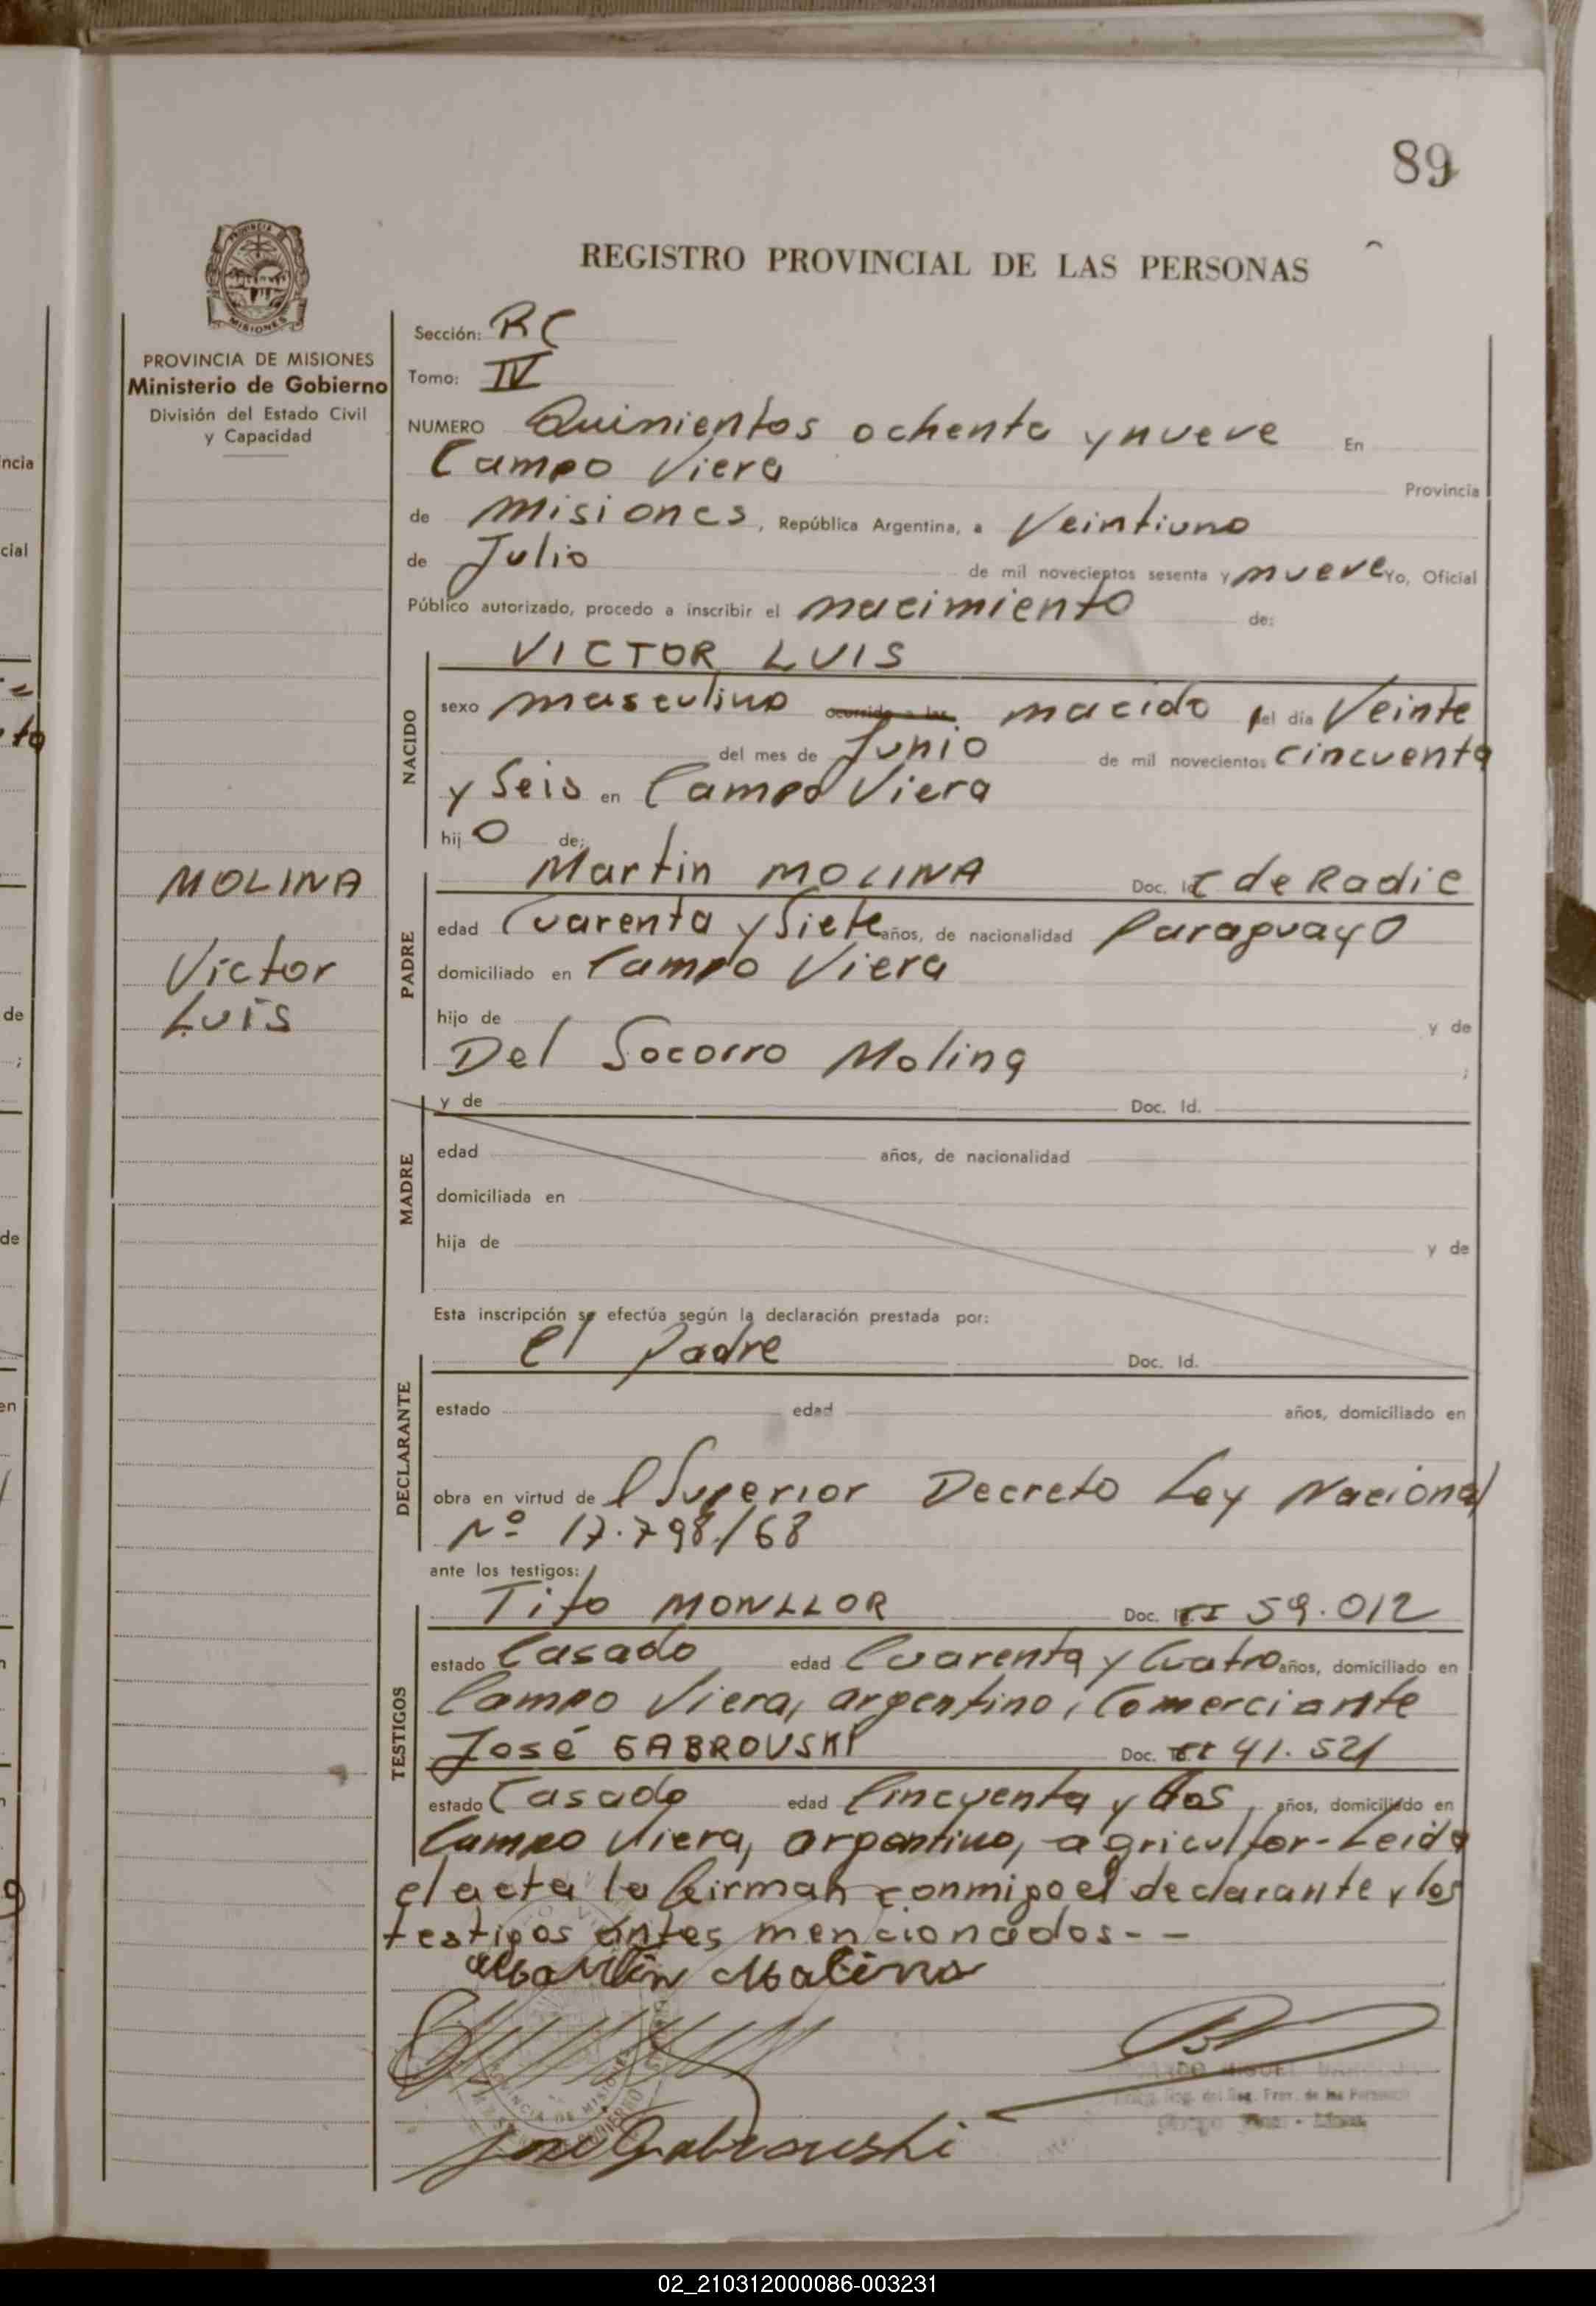 89
REGISTRO PROVINCIAL DE LAS PERSONAS
MISIONES
PROVINCIA DE MISIONES
Ministerio de Gobierno
División del Estado Civil
y Capacidad
Sección: RC
Tomo: IV
NUMERO Quinientos ochenta y nueve En
Campo Viera Provincia
de Misiones, República Argentina, a Veintiuno
de Julio de mil novecientos sesenta y nueve Yo, Oficial
Público autorizado, procedo a inscribir el nacimiento de:
VICTOR LUIS
NACIDO
sexo masculino ocurrido a las nacido el día Veinte
del mes de Junio de mil novecientos cincuenta
y Seis en Campo Viera
hijo de:
MOLINA
Victor
Luis
PADRE
Martin MOLINA Doc. Id. C de Radic
edad Cuarenta y Siete años, de nacionalidad Paraguayo
domiciliado en Campo Viera
hijo de y de
Del Socorro Molina ;
MADRE
y de Doc. Id.
edad años, de nacionalidad
domiciliada en
hija de y de
Esta inscripción se efectúa según la declaración prestada por:
DECLARANTE
el padre Doc. Id.
estado edad años, domiciliado en
obra en virtud de l Superior Decreto Ley Nacional
Nº 17.798/68
ante los testigos:
TESTIGOS
Tito MONLLOR Doc. CI 59.012
estado Casado edad Cuarenta y Cuatro años, domiciliado en
Campo Viera, argentino, Comerciante
José GABROUSKI Doc. CI 41.521
estado Casado edad Cincuenta y dos, años, domiciliado en
Campo Viera, argentino, agricultor- Leida
el acta la firman conmigo el declarante y los
testigos antes mencionados- -
Martin Molina
José Gabrouski
02_210312000086-003231